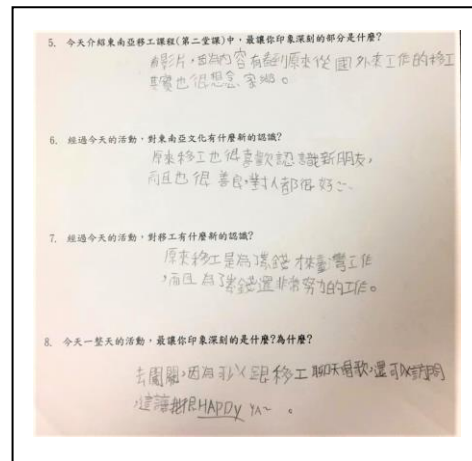 5. 今天介紹東南亞移工課程(第二堂課)中，最讓你印象深刻的部分是什麼?
影片，因為內容有看到原來從國外來工作的移工
其實也很想念家鄉。
6. 經過今天的活動，對東南亞文化有什麼新的認識?
原來移工也很喜歡認識新朋友，
而且也很善良，對人都很好
7. 經過今天的活動，對移工有什麼新的認識?
原來移工是為了賺錢才來臺灣工作
，而且為了賺錢還非常努力的工作。
8. 今天一整天的活動，最讓你印象深刻的是什麼?為什麼?
去闖關，因為可以跟移工聊天唱歌，還可以訪問
，這讓我很HAPPY YA~。